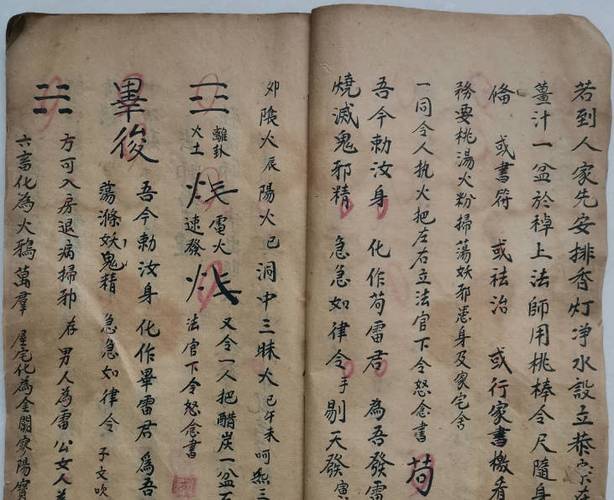 若到人家先安排香灯净水設立恭
薑汁一盆於棹上法師用桃棒令尺隨身
脩 或書符 或祛治 或行家書檄看
務要桃湯火粉掃蕩妖邪患身及家宅分
一同令人執火把左右立法官下令怒念書 苟
吾今勅汝身 化作苟雷君 為吾發雷
燒滅鬼邪精 急急如律令 手 剔天發 寅
卯陰火辰陽火巳洞中三昧火巳午未呵
離卦 電火 又令一人把醋炭一盆
火土 速發 法官下令怒念書
畢後 吾今勅汝身化作畢雷君為吾
蕩滌妖鬼精 急急如律令 子文吹
方可入房退病掃邪存男人為雷公女人
六畜化為火鴉萬羣 屋宅化為金闕寥陽寶